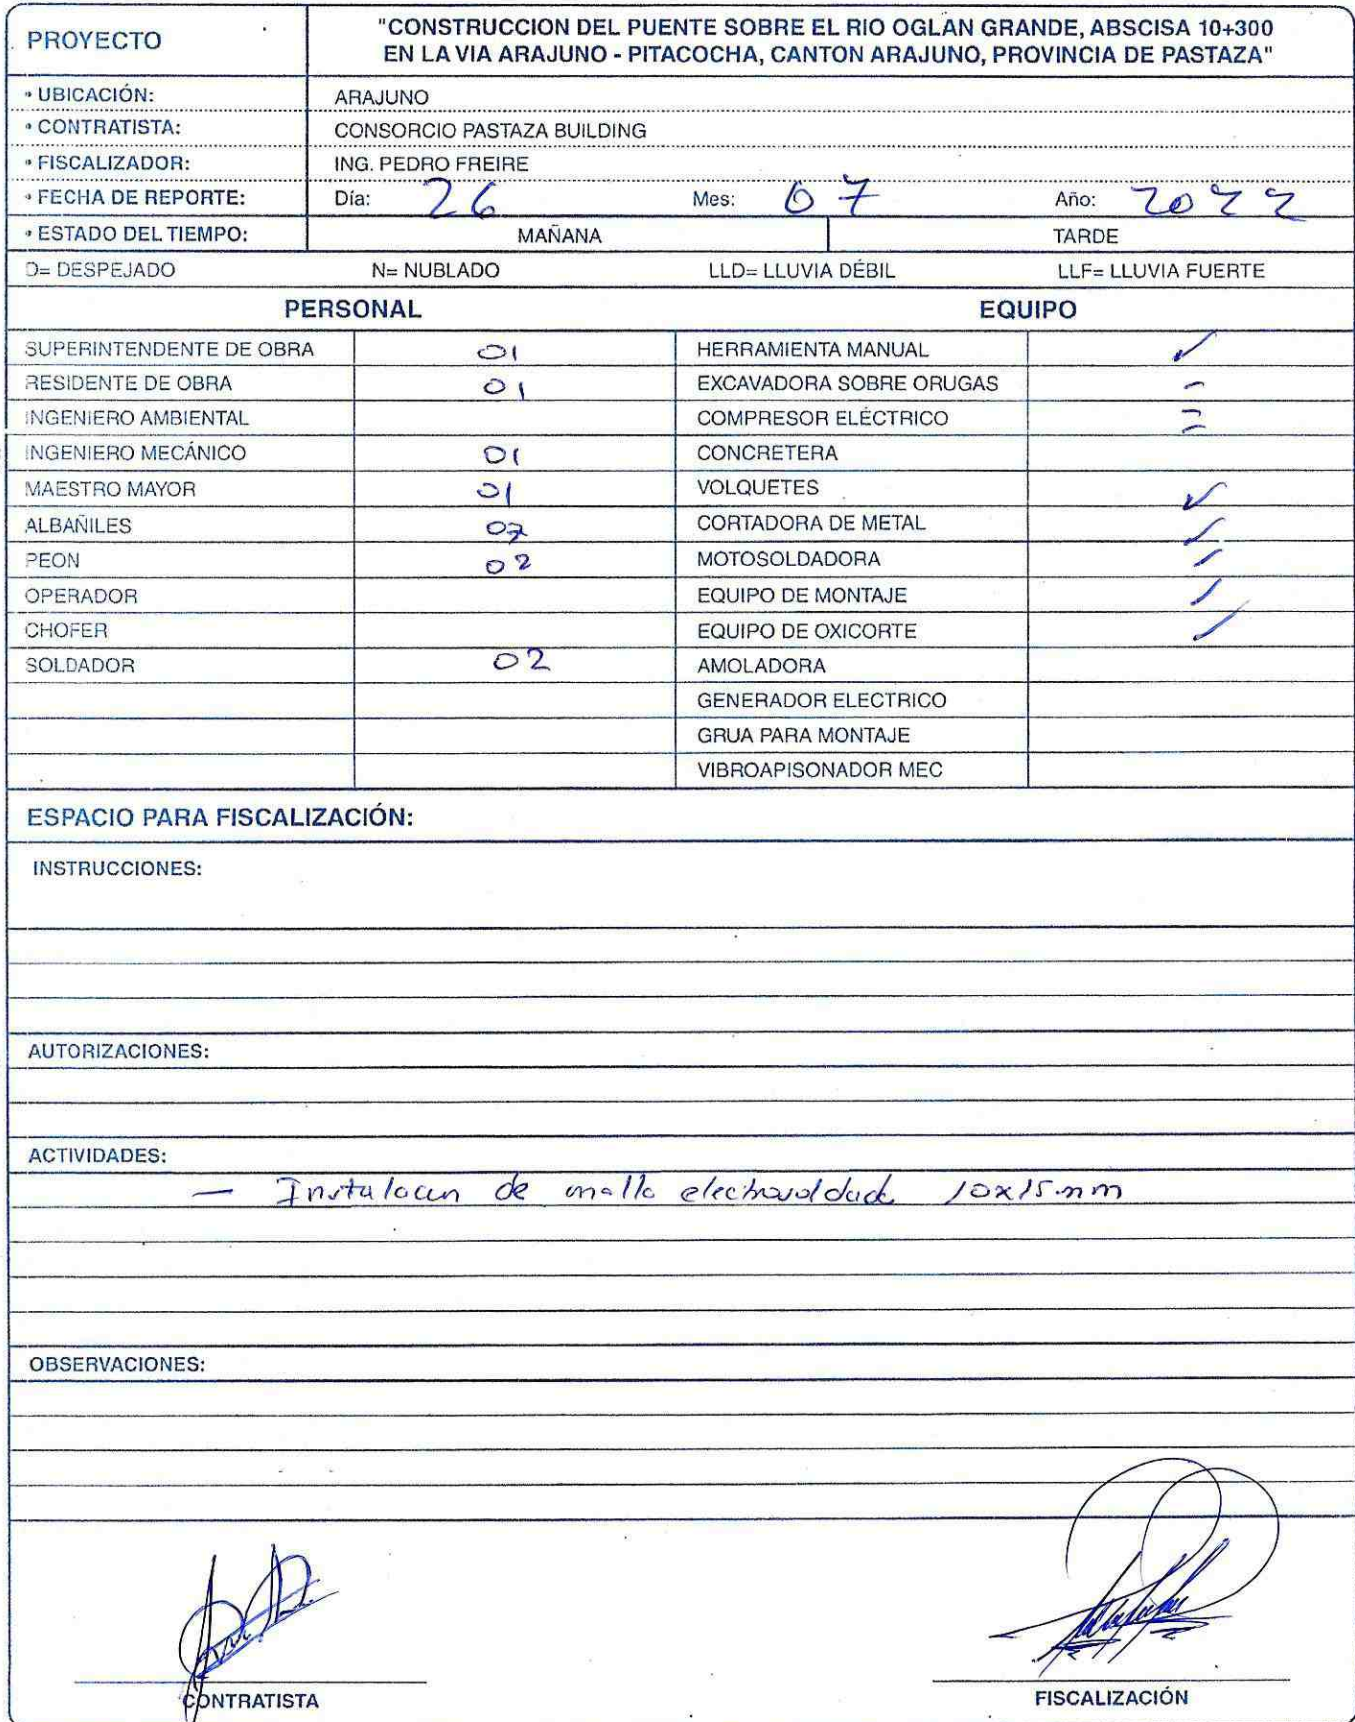 PROYECTO
"CONSTRUCCION DEL PUENTE SOBRE EL RIO OGLAN GRANDE, ABSCISA 10+300
EN LA VIA ARAJUNO - PITACOCHA, CANTON ARAJUNO, PROVINCIA DE PASTAZA"
• UBICACIÓN: ARAJUNO
• CONTRATISTA: CONSORCIO PASTAZA BUILDING
• FISCALIZADOR: ING. PEDRO FREIRE
• FECHA DE REPORTE: Día: 26 Mes: 07 Año: 2022
• ESTADO DEL TIEMPO: MAÑANA TARDE
D= DESPEJADO N= NUBLADO LLD= LLUVIA DÉBIL LLF= LLUVIA FUERTE
PERSONAL EQUIPO
SUPERINTENDENTE DE OBRA 01 HERRAMIENTA MANUAL ✓
RESIDENTE DE OBRA 01 EXCAVADORA SOBRE ORUGAS -
INGENIERO AMBIENTAL COMPRESOR ELÉCTRICO =
INGENIERO MECÁNICO 01 CONCRETERA
MAESTRO MAYOR 01 VOLQUETES ✓
ALBAÑILES 07 CORTADORA DE METAL ✓
PEON 02 MOTOSOLDADORA ✓
OPERADOR EQUIPO DE MONTAJE ✓
CHOFER EQUIPO DE OXICORTE ✓
SOLDADOR 02 AMOLADORA
GENERADOR ELECTRICO
GRUA PARA MONTAJE
VIBROAPISONADOR MEC
ESPACIO PARA FISCALIZACIÓN:
INSTRUCCIONES:
AUTORIZACIONES:
ACTIVIDADES:
— Instalacn de malla electrosoldada 10x15 mm
OBSERVACIONES:
CONTRATISTA FISCALIZACIÓN